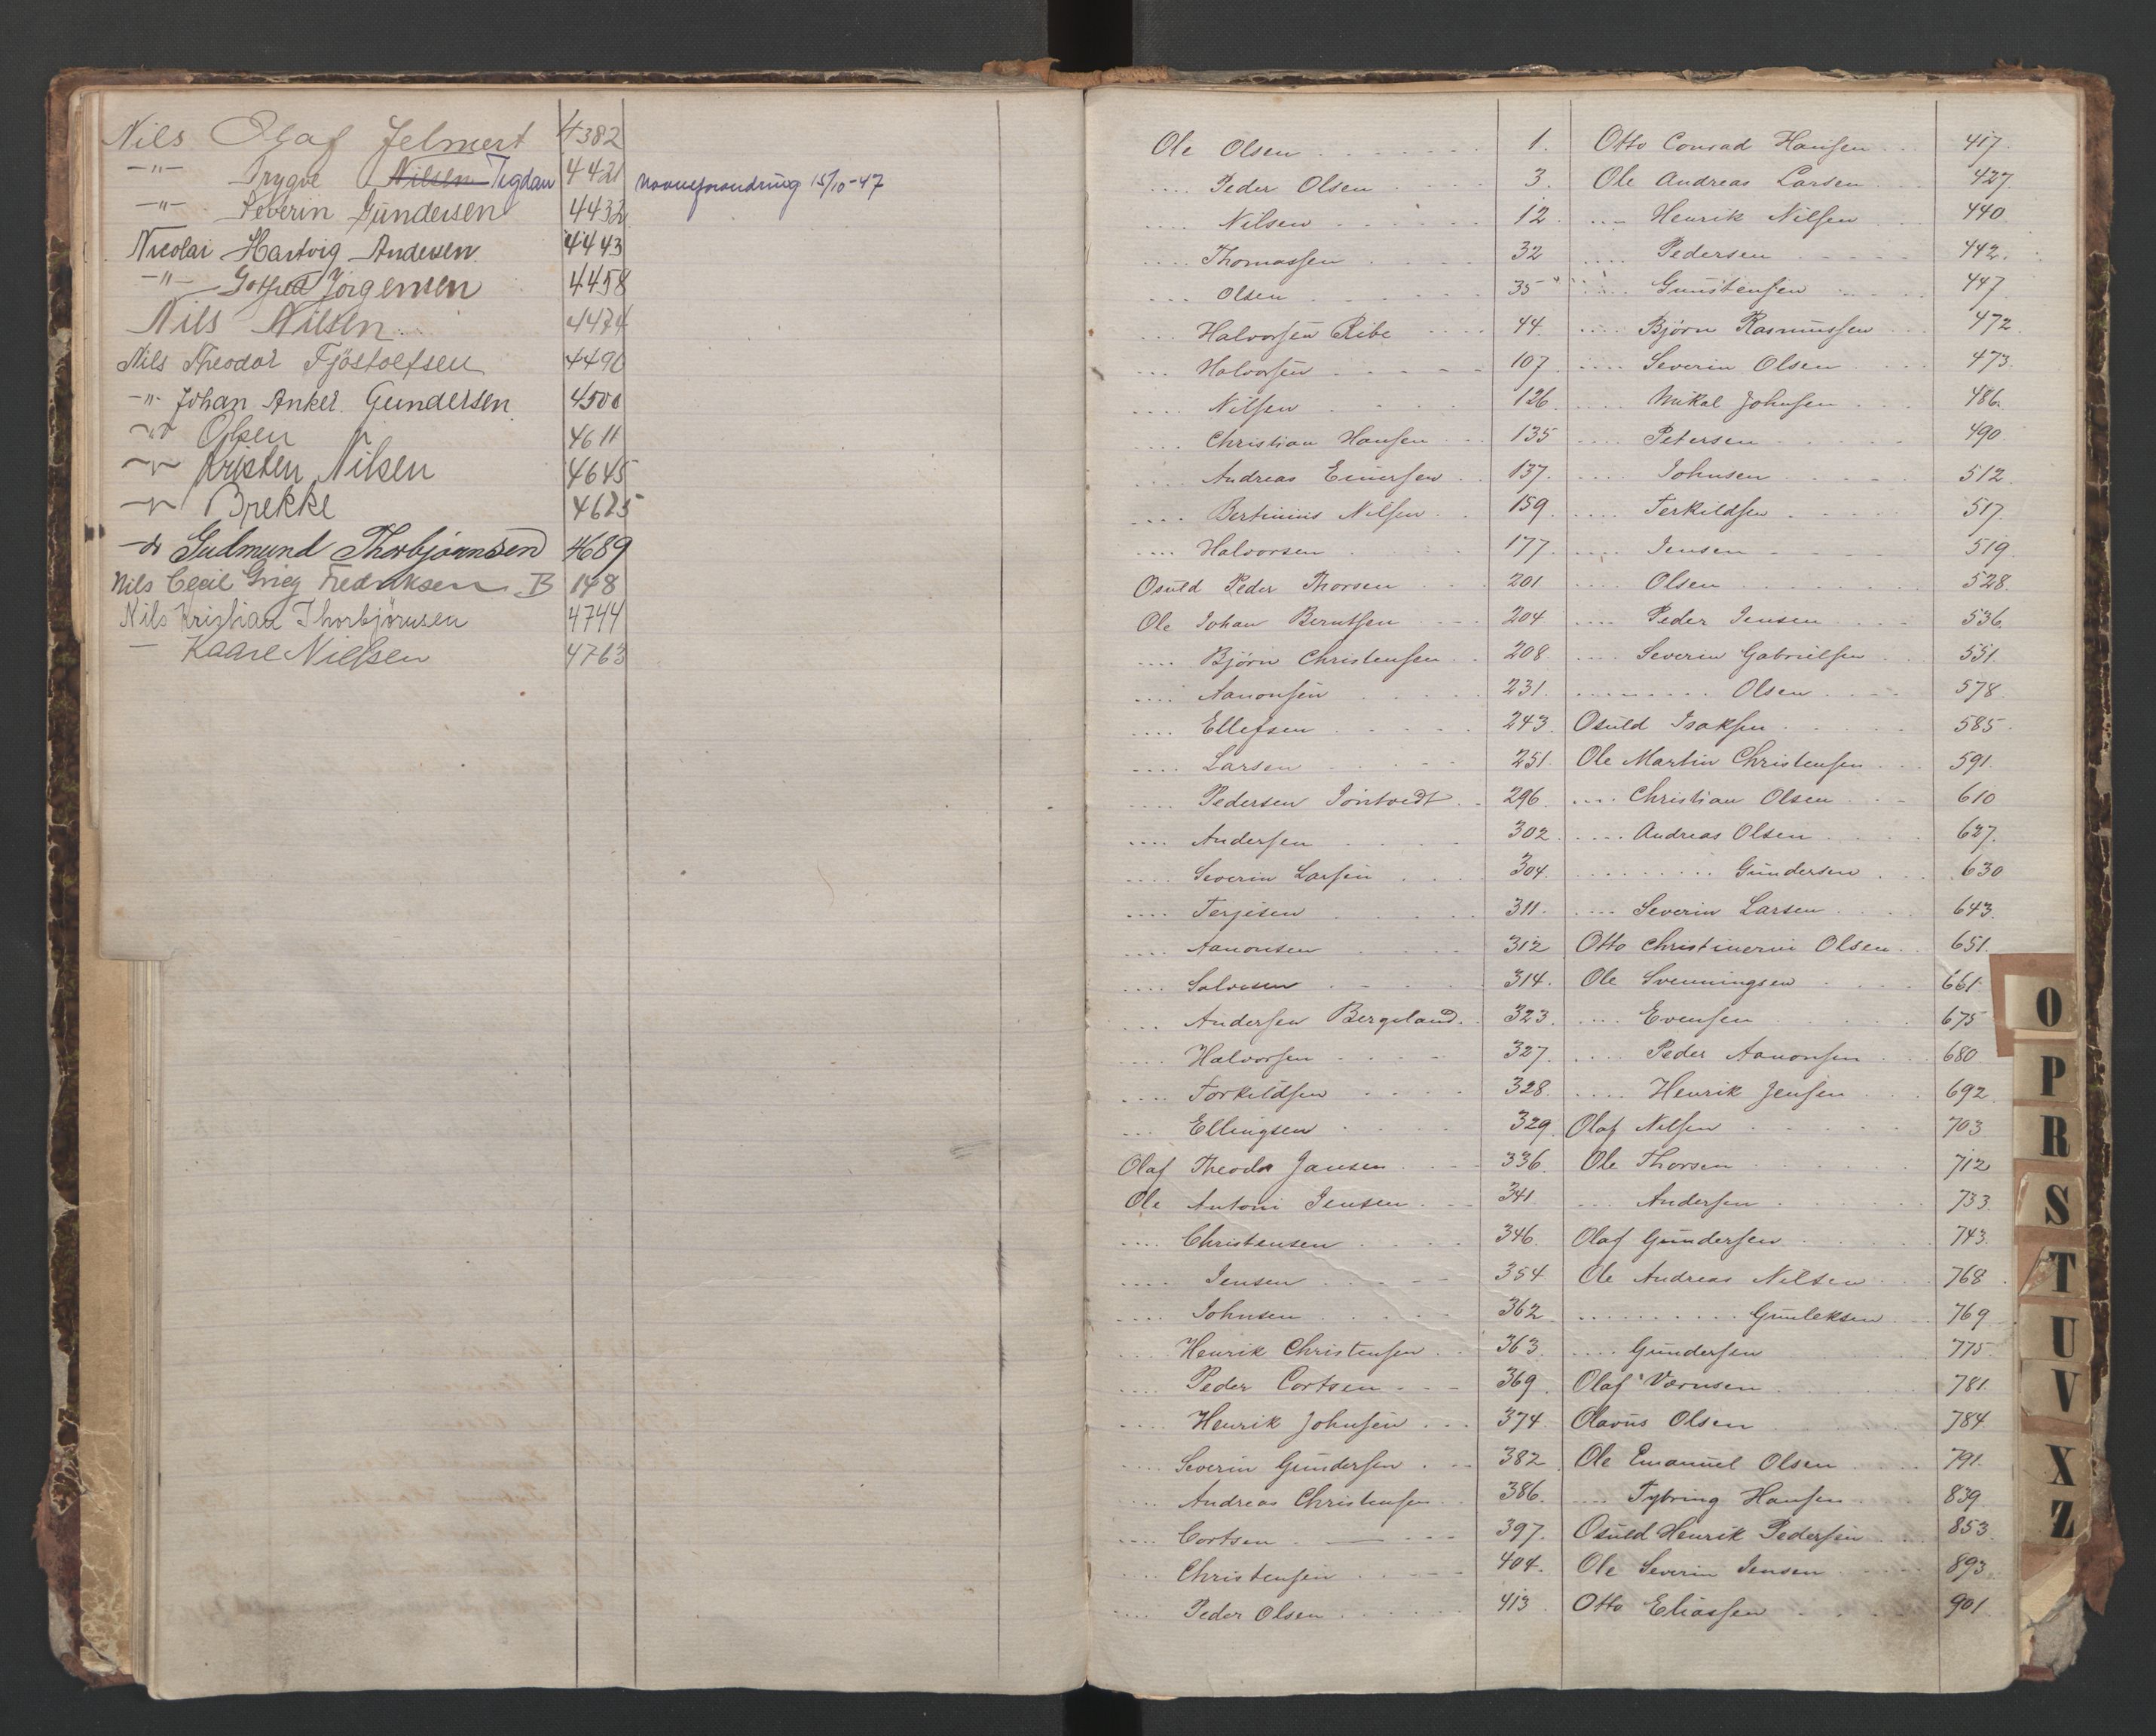 Nils Olaf Jelmert 4382
-"- Trygve Nilsen Tegdan 4421 navneforandring 15/10-47
-"- Severin Gundersen 4432
Nicolai Hartvig Andersen 4443
-"- Gotfred Jörgensen 4458
Nils Nilsen 4474
Nils Theodor Fjöstolfsen 4490
-"- Johan Anker Gundersen 4500
-"- Olsen 4611
-"- Kristen Nilsen 4645
-"- Brekke 4625
-"- Gudmund Thorbjørnsen 4689
Nils Cecil Grieg Fredriksen B 148
Nils Kristian Thorbjørnsen 4744
- Kaare Nielsen 4763
Ole Olsen 1.
.... Peder Olsen 3.
.... Nilsen 12.
.... Thomassen 32
.... Olsen 35
.... Halvorsen Ribe 44.
.... Halvorsen 107.
.... Nilsen 126.
.... Christian Hansen 135
.... Andreas Einersen 137.
.... Bertinius Nilsen 159.
.... Halvorsen 177.
Osuld Peder Thorsen 201
Ole Johan Berntsen 204
.... Bjørn Christensen 208
.... Aanonsen 231.
.... Ellefsen 243.
.... Larsen 251
.... Pedersen Jontvedt 296.
.... Andersen 302
.... Severin Larsen 304.
.... Terjesen 311.
.... Aanonsen 312
.... Salvesen 314.
.... Andersen Bergeland 323.
.... Halvorsen 327.
.... Torkildsen 328.
.... Ellingsen 329.
Olaf Theodor Jansen 336.
Ole Antoni Jensen 341
.... Christensen 346.
.... Jensen 354
.... Johnsen 362
.... Henrik Christensen 363.
.... Peder Cortsen 369.
.... Henrik Johnsen 374.
.... Severin Gundersen 382
.... Andreas Christensen 386.
.... Cortsen 397.
.... Christensen 404.
.... Peder Olsen 413.
Otto Conrad Hansen 417.
Ole Andreas Larsen 427.
.... Henrik Nilsen 440
.... Pedersen 442.
.... Gunstensen 447
.... Bjørn Rasmussen 472.
.... Severin Olsen 473.
.... Mikal Johnsen 486.
.... Petersen 490.
.... Johnsen 512.
.... Terkildsen 517.
.... Jensen 519
.... Olsen 528.
.... Peder Jensen 536.
.... Severin Gabrielsen 551.
........ Olsen 578
Osuld Isaksen 585.
Ole Martin Christensen 591.
.... Christian Olsen 610
.... Andreas Olsen 627.
........ Gundersen 630
.... Severin Larsen 643.
Otto Christineriu Olsen 651.
Ole Svenningsen 661.
.... Evensen 675
.... Peder Aanonsen 680
.... Henrik Jensen 692.
Olaf Nilsen 703
Ole Thorsen 712
.... Andersen 733.
Olaf Gundersen 743.
Ole Andreas Nilsen 768
........ Gunleksen 769
.... Gundersen 775.
OlafVærnsen 781.
Olavus Olsen 784
Ole Emanuel Olsen 791.
.... Tybring Hansen 839
Osuld Henrik Pedersen 853.
Ole Severin Jensen 893.
Otto Eliassen 901
O
P
R
S
T
U
V
X
Z